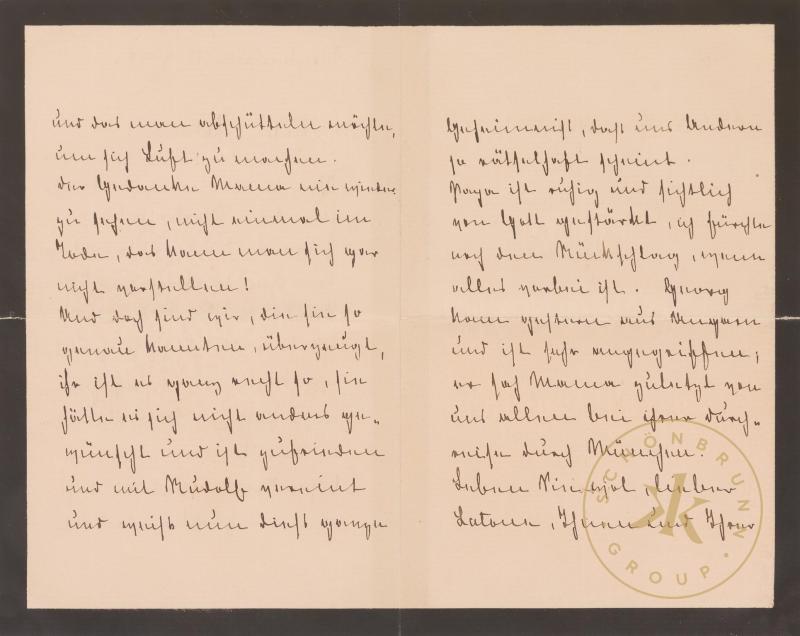 und das man abschütteln möchte,
um sich Luft zu machen.
Der Gedanke Mama nie wieder
zu sehen, nicht einmal im
Tode, das kann man sich gar
nicht vorstellen!
Und doch sind wir, die sie so
genau kannten, überzeugt,
ihr ist es ganz recht so, sie
hätte es sich nicht anders ge-
wünscht und ist zufrieden
und mit Rudolf vereint
und weiß nun dieß ganze
Geheimniß, daß uns Andern
so rätselhaft scheint.
Papa ist ruhig und sichtlich
von Gott gestärkt, ich fürchte
noch den Rückschlag, wenn
alles vorbei ist. Georg
kam gestern aus Ungarn
und ist sehr angegriffen;
er sah Mama zuletzt von
uns allen bei ihrer Durch-
reise durch München.
Leben Sie wol, lieber
Latour, Ihnen und Ihrer
SCHÖNBRUNN GROUP